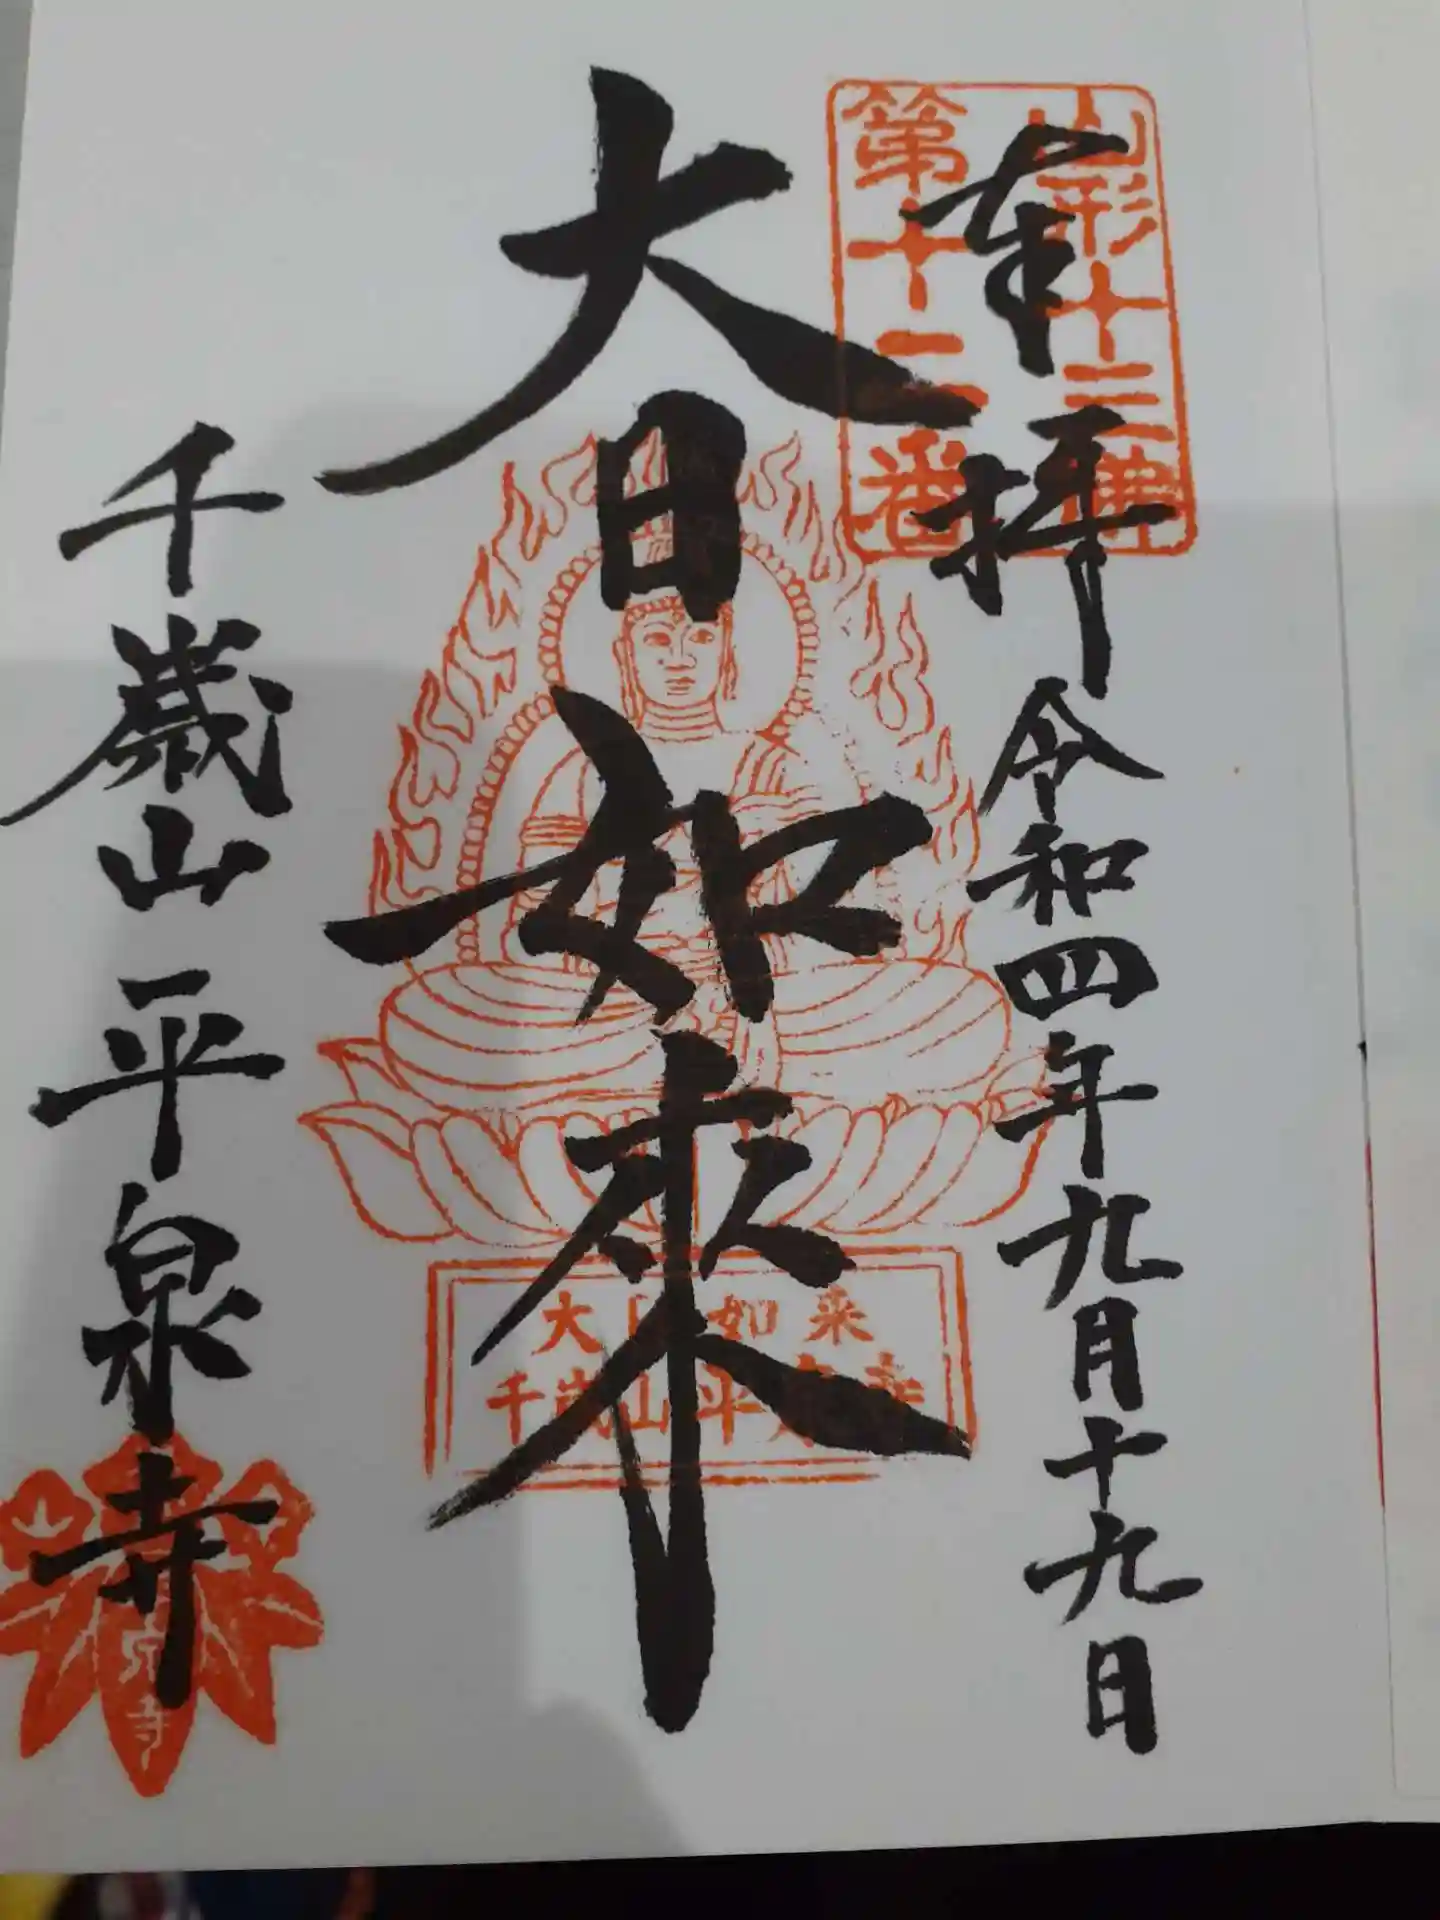 奉拝 令和四年九月十九日
山形十三佛
第十二番
大日如来
大日如来
千歳山平泉寺
千歳山平泉寺